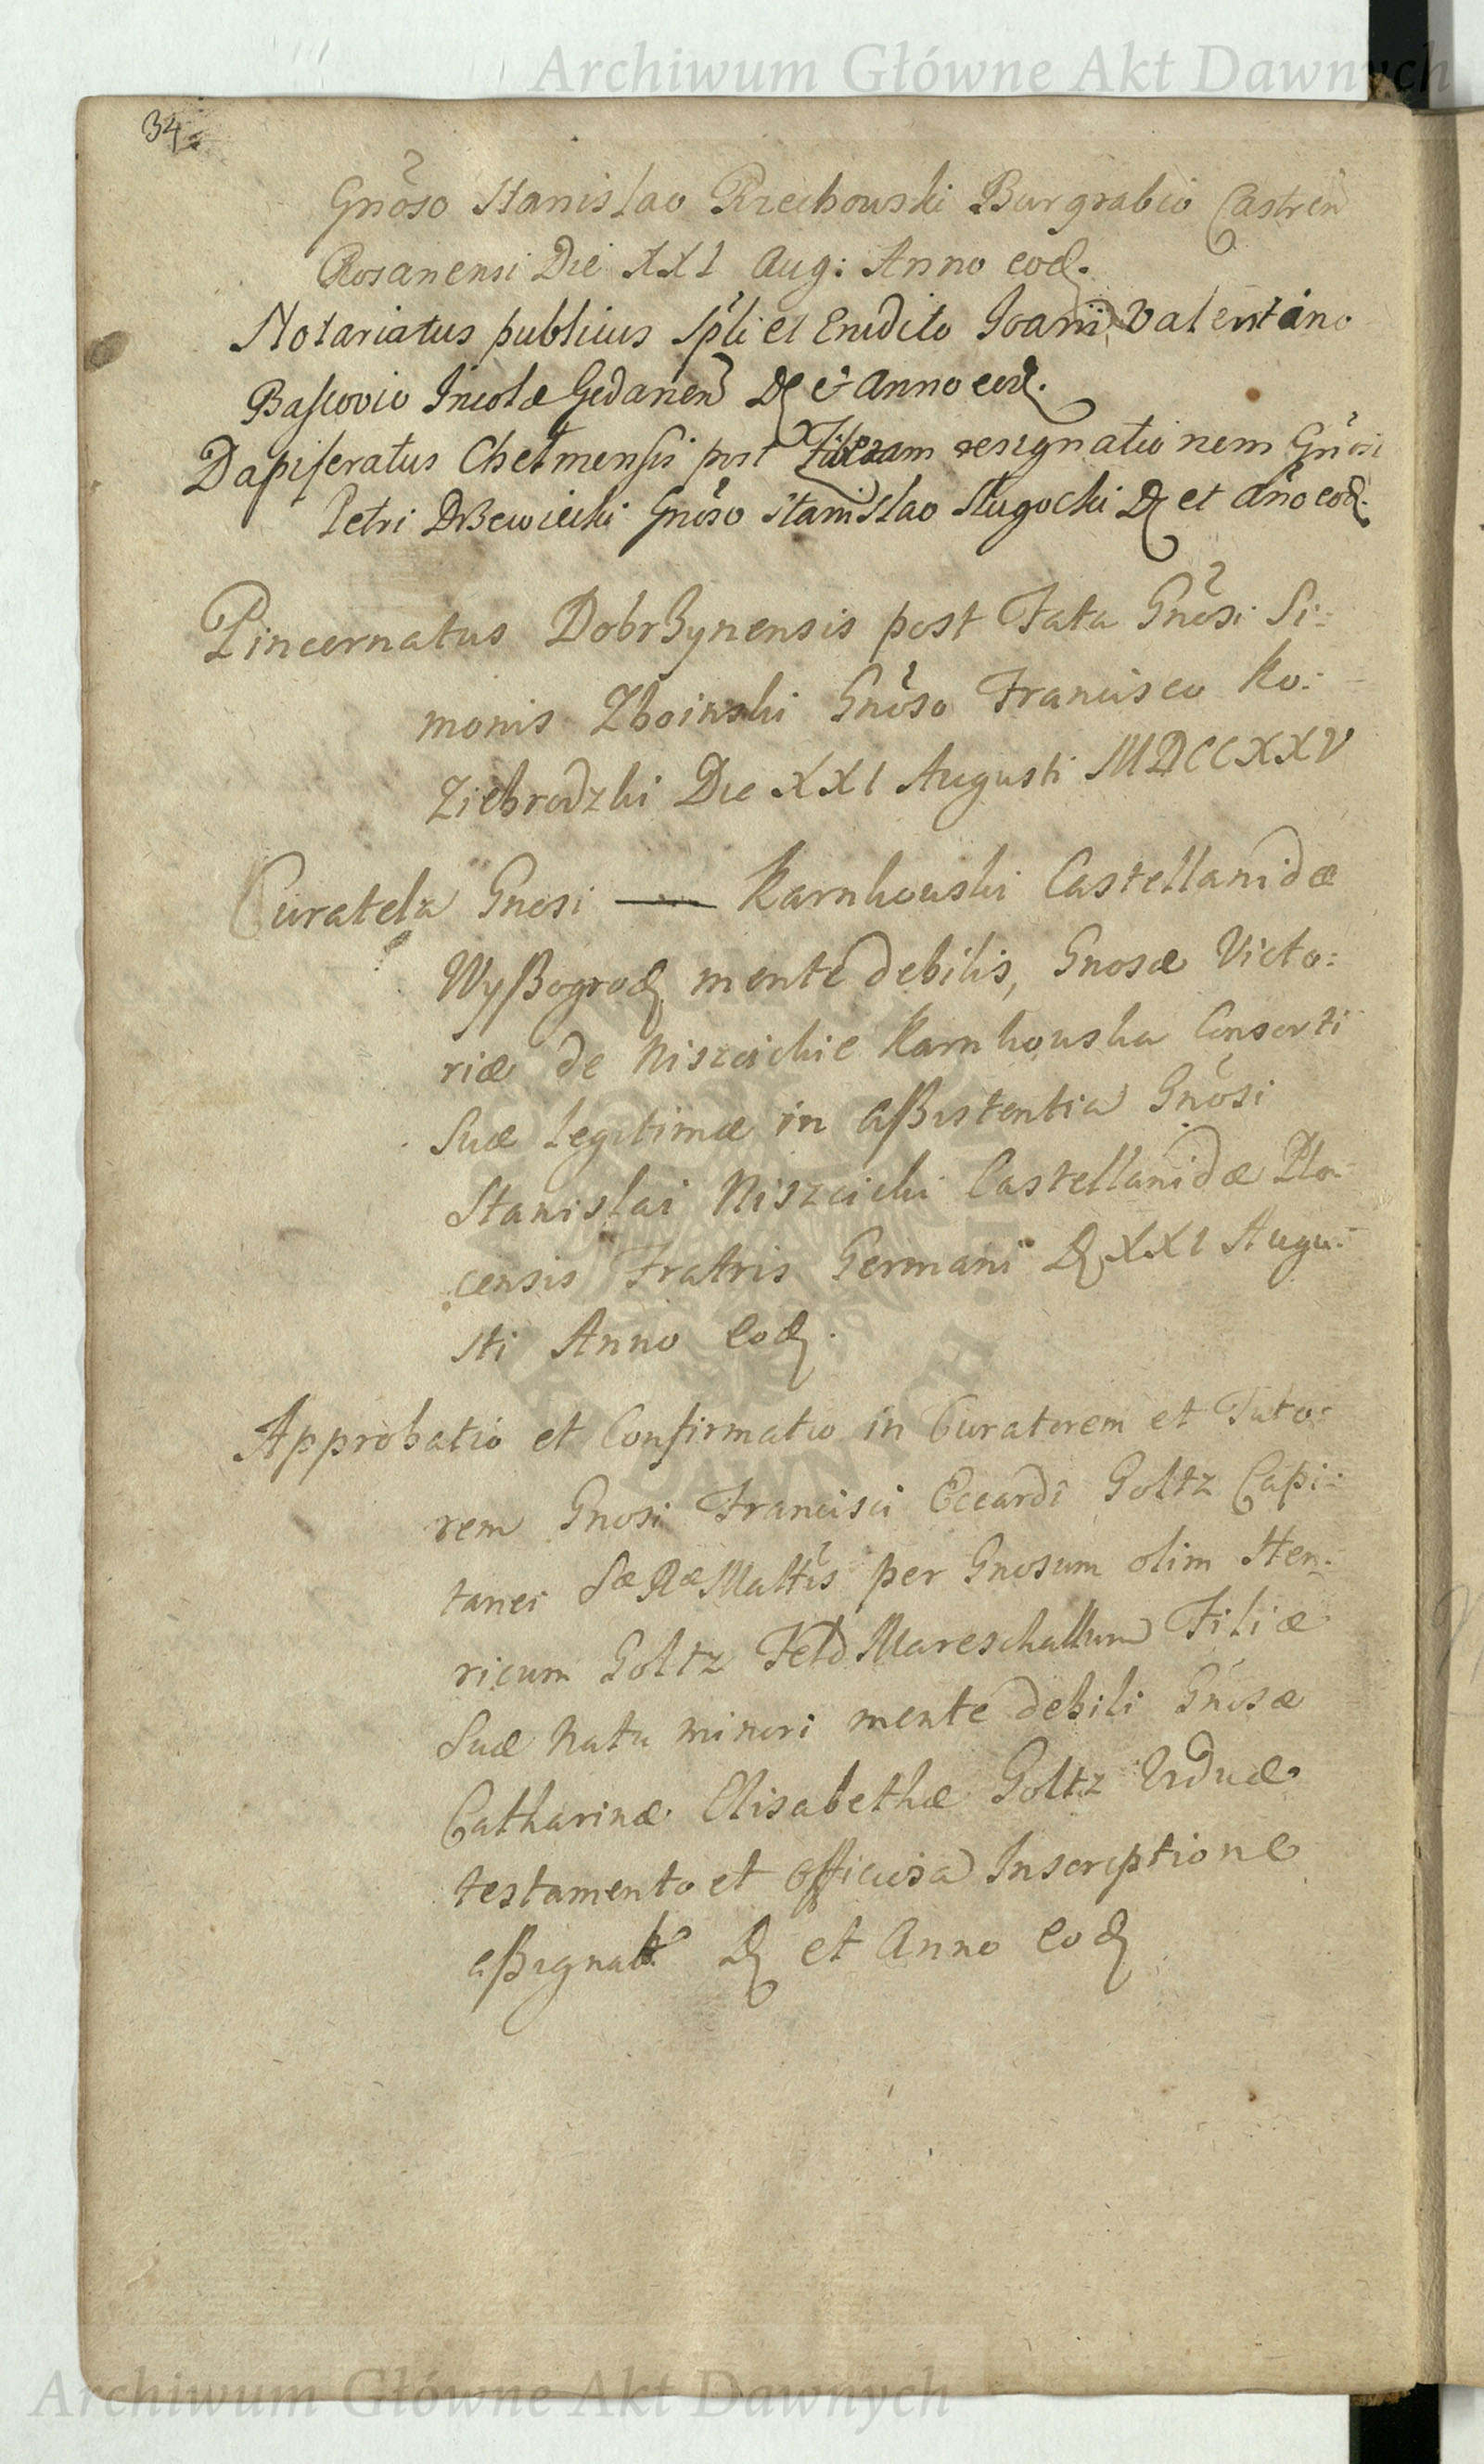 Archiwum Główne Akt Dawnych
34
Gnoso Stanislao Rzechowski Burgrabio Castren
Rosanensi Die XXI Aug: Anno eod.
Notariatus publicus Spli et Erudito Joanni Valentino
Bascovio Incolæ Gedanen D et Anno eod.
Dapiferatus Chelmensis post Liberam resignationem Gnosi
Petri Drzewiecki Gnoso Stanislao Slugocki D et Año eod.
Pincernatus Dobrzynensis post Fata Gnosi Si:
monis Zboinski Gnoso Francisco Ko:
ziebrodzki Die XXI Augusti MDCCXXV
Curatela Gnosi — Karnkowski Castellanidæ
Wyßogrod mente debilis, Gnosæ Victo:
riæ de Niszczickie Karnkowska Consorti
Suæ Legitimæ in Aßistentia Gnosi
Stanislai Niszczicki Castellanidæ Plo:
censis Fratris Germani D XXI Augu:
sti Anno eod.
Approbatio et Confirmatio in Curatorem et Tuto:
rem Gnosi Francisci Eccardi Goltz Capi:
tanei Sæ Ræ Mattis per Gnosum olim Hen:
ricum Goltz Feld Mareschallum Filiæ
Suæ Natu minori mente debili Gnosæ
Catharinæ Elisabethæ Goltz Viduæ
testamento et officiosa Inscriptione
aßignat D et Anno eod
Archiwum Główne Akt Dawnych